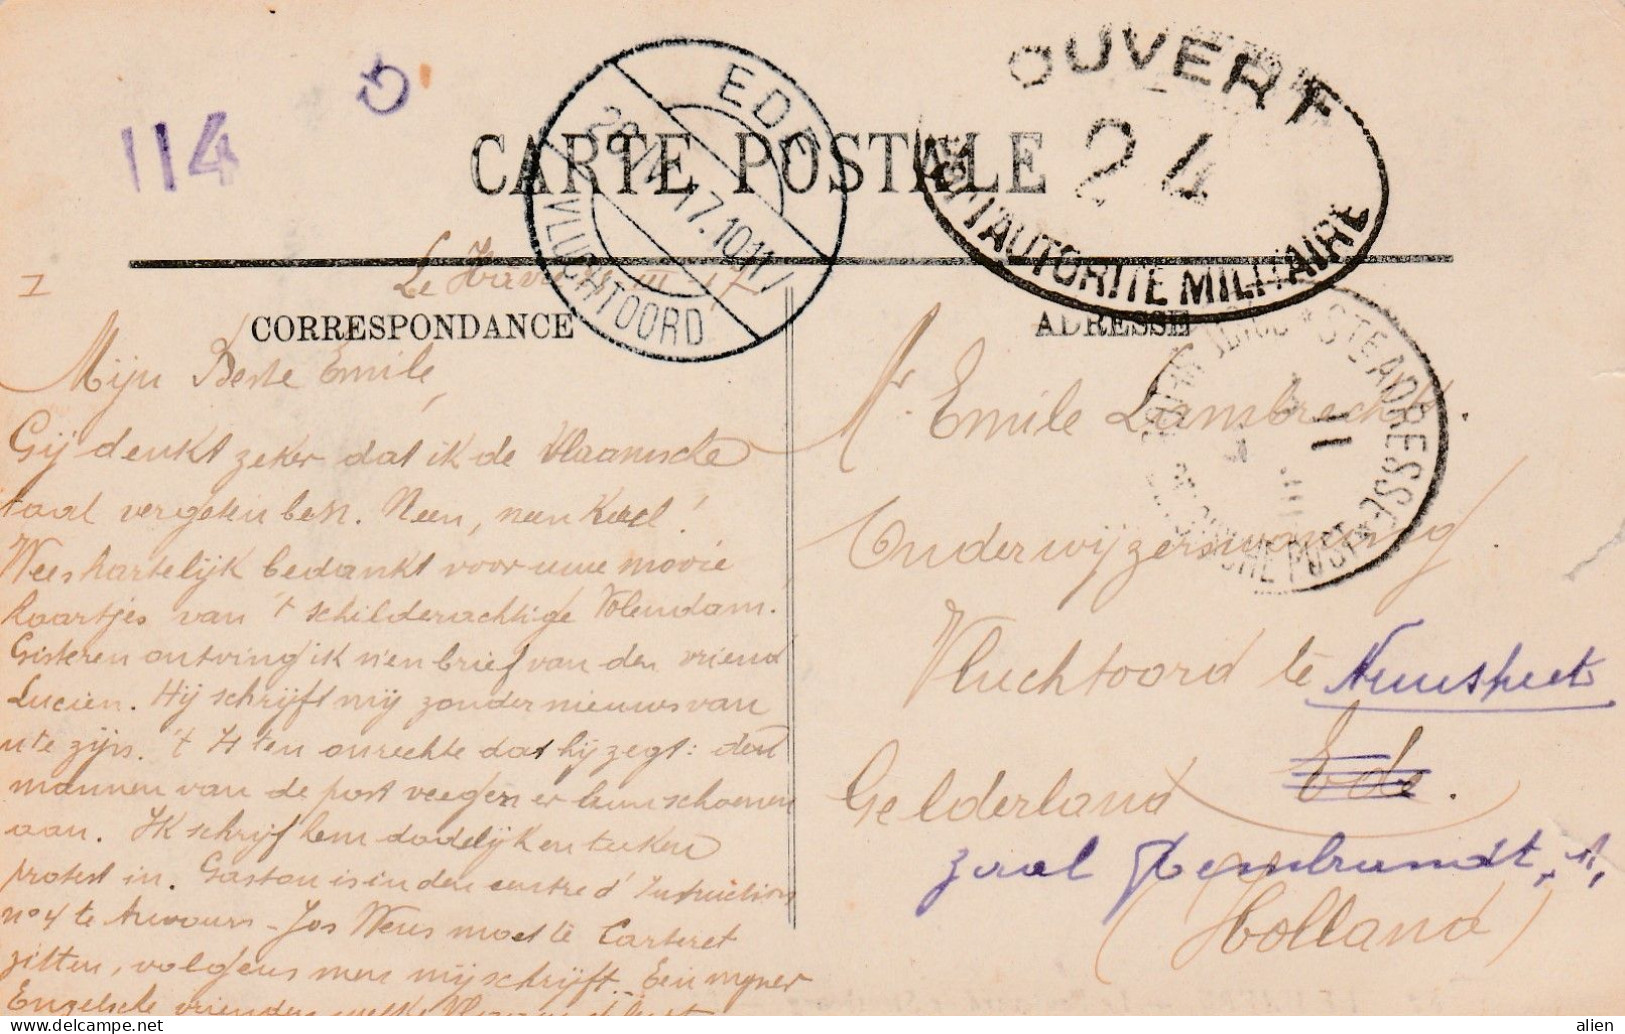 114
OUVERT
24
PAR L'AUTORITÉ MILITAIRE
EDE
VLUCHTOORD
CARTE POSTALE
Le Havre
CORRESPONDANCE
ADRESSE
STE ADRESSE
I
Mijn Beste Emile,
Gij denkt zeker dat ik de Vlaamsche
taal vergeten ben. Neen, neen Karel!
Wees hartelijk bedankt voor uwe mooie
kaartjes van 't schilderachtige Volendam.
Gisteren ontving ik n'en brief van den vriend
Lucien. Hij schrijft mij zonder nieuws van
u te zijn. 't Is ten onrechte dat hij zegt: dat
mannen van de post veegen er hun schoenen
aan. Ik schrijf hem dadelijk en
protest in. Gaston is in den centre d'Instruction
no 4 te Auvours - Jos Wens moet te Carteret
zitten, volgens men mij schrijft. Een mijner
Engelsche vrienden welke
Mr. Emile Lambrecht.
Onderwijzerswoning.
Vluchtoord te Nunspeet
Ede.
Gelderland
zaal Rembrandt,
(Holland)
alien